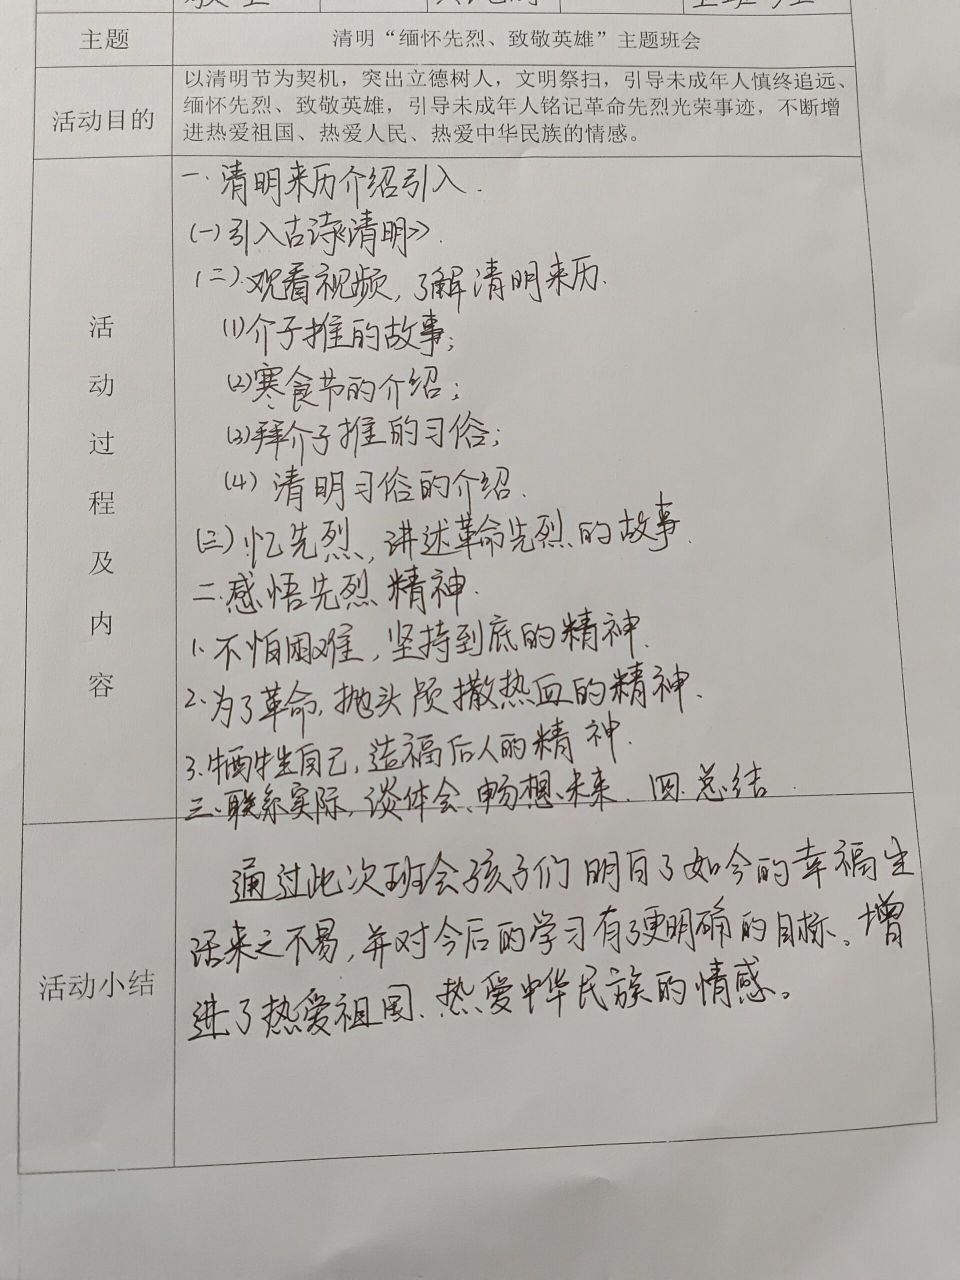 主题
清明“缅怀先烈、致敬英雄”主题班会
活动目的
以清明节为契机，突出立德树人，文明祭扫，引导未成年人慎终追远、
缅怀先烈、致敬英雄，引导未成年人铭记革命先烈光荣事迹，不断增
进热爱祖国、热爱人民、热爱中华民族的情感。
活动过程及内容
一、清明来历介绍引入.
(一)引入古诗《清明》.
(二).观看视频,了解清明来历.
(1)介子推的故事;
(2)寒食节的介绍;
(3)拜介子推的习俗;
(4) 清明习俗的介绍.
(三)忆先烈,讲述革命先烈的故事.
二.感悟先烈精神.
1.不怕困难,坚持到底的精神.
2.为了革命,抛头颅撒热血的精神.
3.牺牲自己,造福后人的精神.
三.联系实际,谈体会、畅想未来. 四.总结.
活动小结
通过此次班会孩子们明白了如今的幸福生
活来之不易,并对今后的学习有了更明确的目标。增
进了热爱祖国、热爱中华民族的情感。